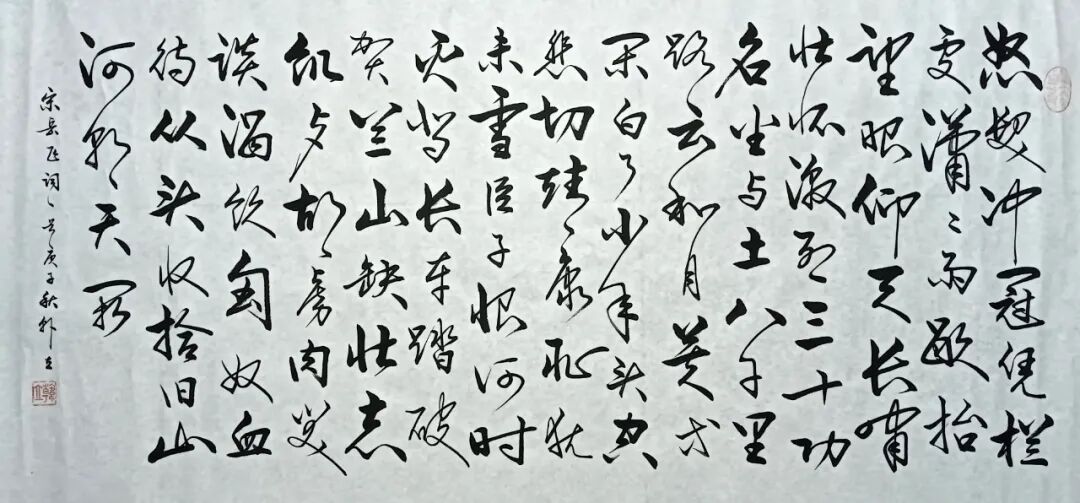 怒髮冲冠凭栏
处潇潇雨歇抬
望眼仰天长啸
壮怀激烈三十功
名尘与土八千里
路云和月莫等
闲白了少年头空
悲切靖康耻犹
未雪臣子恨何时
灭驾长车踏破
贺兰山缺壮志
饥餐胡虏肉笑
谈渴饮匈奴血
待从头收拾旧山
河朝天阙
宋岳飞词一首庚子秋